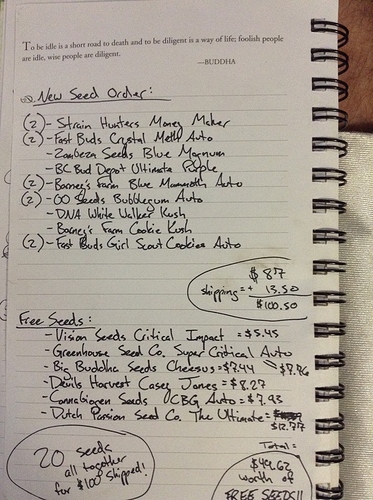 To be idle is a short road to death and to be diligent is a way of life; foolish people
are idle, wise people are diligent.
—BUDDHA
New Seed Order:
(2) - Strain Hunters Money Maker
(2) - Fast Buds Crystal Meth Auto
- Zambeza Seeds Blue Magnum
- BC Bud Depot Ultimate Purple
(2) - Barney's Farm Blue Mammoth Auto
(2) - 00 Seeds Bubblegum Auto
- DNA White Walker Kush
- Barney's Farm Cookie Kush
(2) - Fast Buds Girl Scout Cookies Auto
$87
shipping = + 13.50
$100.50
Free Seeds:
- Vision Seeds Critical Impact = $5.45
- Greenhouse Seed Co. Super Critical Auto
- Big Buddha Seeds Cheesus = $7.44 = $7.76
- Devils Harvest Casey Jones = $8.27
- Cannabiogen Seeds CBG Auto = $7.93
- Dutch Passion Seed Co. The Ultimate =
$12.77
Total =
20 seeds
all together
for $100 shipped!
$49.62
worth of
FREE SEEDS!!